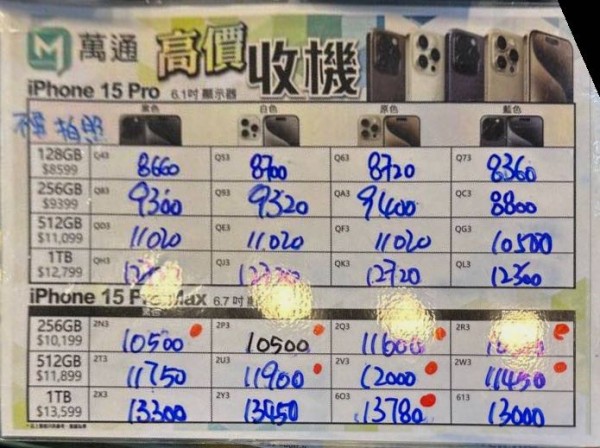 萬通 高價收機
iPhone 15 Pro 6.1吋 顯示器
黑色 白色 原色 藍色
不準拍照
128GB Q43 8660 Q53 8700 Q63 8720 Q73 8360
$8599
256GB Q83 9300 Q93 9320 QA3 9400 QC3 8800
$9399
512GB QD3 11020 QE3 11020 QF3 11020 QG3 10580
$11,099
1TB QH3 QJ3 QK3 12720 QL3 12300
$12,799
iPhone 15 Pro Max 6.7吋
256GB 2N3 10500 2P3 10500 2Q3 11600 2R3
$10,199
512GB 2T3 11750 2U3 11900 2V3 12000 2W3 11450
$11,899
1TB 2X3 13300 2Y3 13450 6O3 13780 613 13000
$13,599